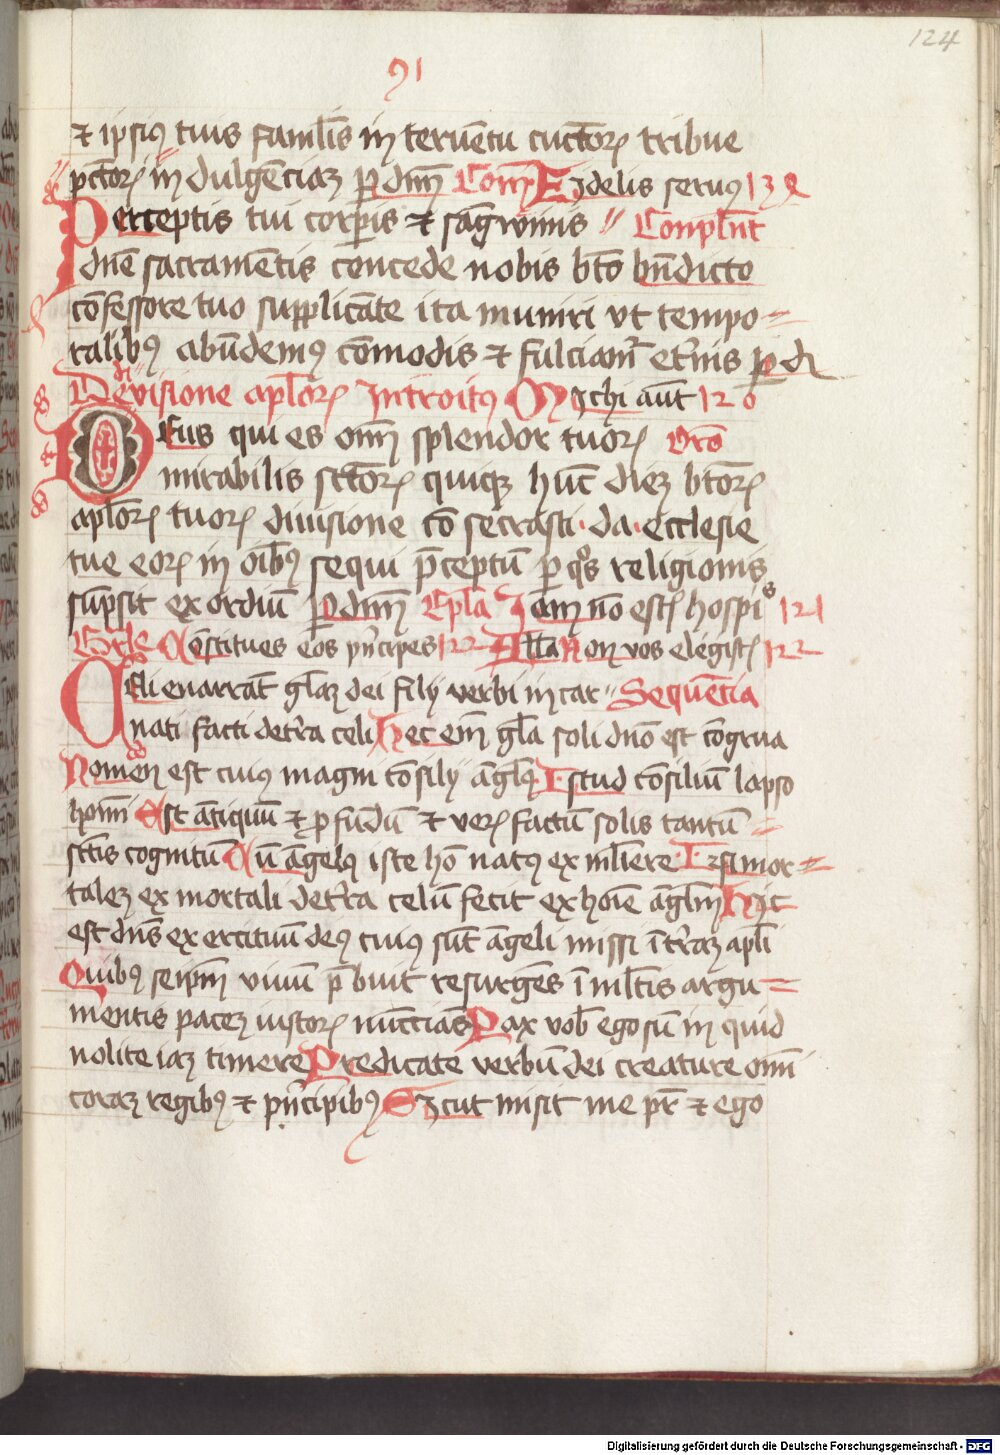 124
91
⁊ ipsiꝰ tuis famłis in teruētu cūctoꝝ tribue
pctōꝝ in dulgēciaꝫ ꝑ dnm̄ Com̄ Fidelis seruꝰ 138
Perceptis tui corꝑis ⁊ sāgwinis Conplēnt
dn̄e sacramētis concede nobis bt̄o bn̄dicto
cōfessore tuo supplicāte ita muniri vt tempo
ralibꝰ abūdemꝰ cōmodis ⁊ fulciamr̄ etr̄nis ꝑ d
De divisione apl̄oꝝ Introitꝰ Michi aūt 120
Deus qui es om̄ splendor tuoꝝ Oro
mirabilis sctōꝝ quiqꝫ hūc dieꝫ bt̄oꝝ
apl̄oꝝ tuoꝝ diuisione cō secrasti da ecclesie
tue eoꝝ in oībꝰ sequi p̄ceptū ꝑ qͦs religionis
sūpsit exordiū ꝑ dnm̄ Epl̄a Iam nō estꝭ hospiˢ 121
Grl̄e Cōstitues eos prīcipes 122 All̄a Non vos elegistꝭ 122
Celi enarrāt gl̄aꝫ dei filij verbi in car Sequētia
nati facti de tr̄ra celi Hec em̄ gl̄a soli dn̄o est cōgrua
Nomen est cuiꝰ magni cōsilij āglꝰ Istud cōsiliū lapso
hom̄i Est ātiquū ⁊ ꝓfūdū ⁊ veꝝ factū solis tantū
sctīs cognitū Cū āgelꝰ iste hō natꝰ ex ml̄iere Īmor
taleꝫ ex mortali de tr̄ra celū fecit ex hoīe āglm̄ Hic
est dn̄s exercituū deꝰ cuiꝰ sūt āgeli missi ī tr̄raꝫ apl̄i
Quibꝰ seipm̄ viuū p̄buit resurgēs ī ml̄tis argu
mentis paceꝫ victoꝝ nūcciās Pax vob̄ ego sū in quid
nolite iaꝫ timere Predicate verbū dei creature om̄i
coraꝫ regibꝰ ⁊ prīcipibꝰ Sicut misit me pr̄ ⁊ ego
Digitalisierung gefördert durch die Deutsche Forschungsgemeinschaft - DFG